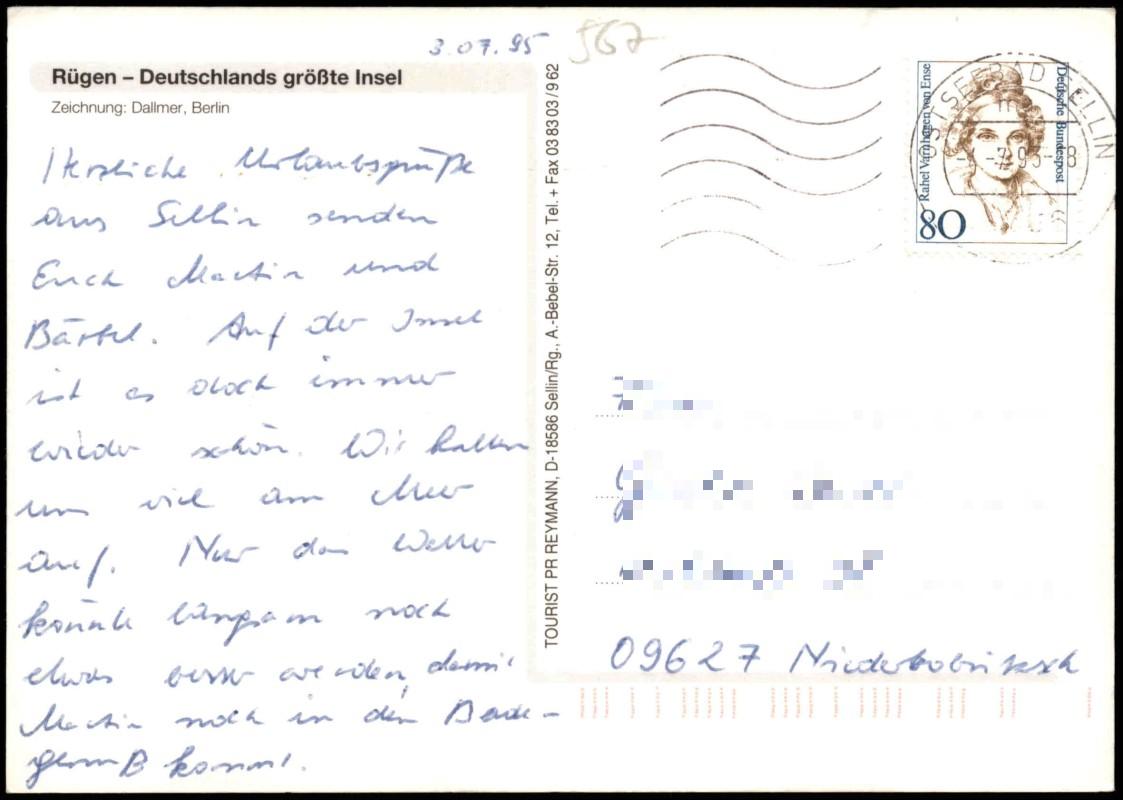 3.07.95
567
Rügen – Deutschlands größte Insel
Zeichnung: Dallmer, Berlin
Herzliche Urlaubsgrüße
aus Sellin senden
Euch Martin und
Bärbel. Auf der Insel
ist es doch immer
wieder schön. Wir halten
uns viel am Meer
auf. Nur das Wetter
könnte langsam noch
etwas besser werden, damit
Martin noch in den Bade-
genuß kommt.
TOURIST PR REYMANN, D-18586 Sellin/Rg., A.-Bebel-Str. 12, Tel. + Fax 03 83 03/9 62
Rahel Varnhagen von Ense
Deutsche Bundespost
80
OSTSEEBAD SELLIN
09627 Niederbobritzsch